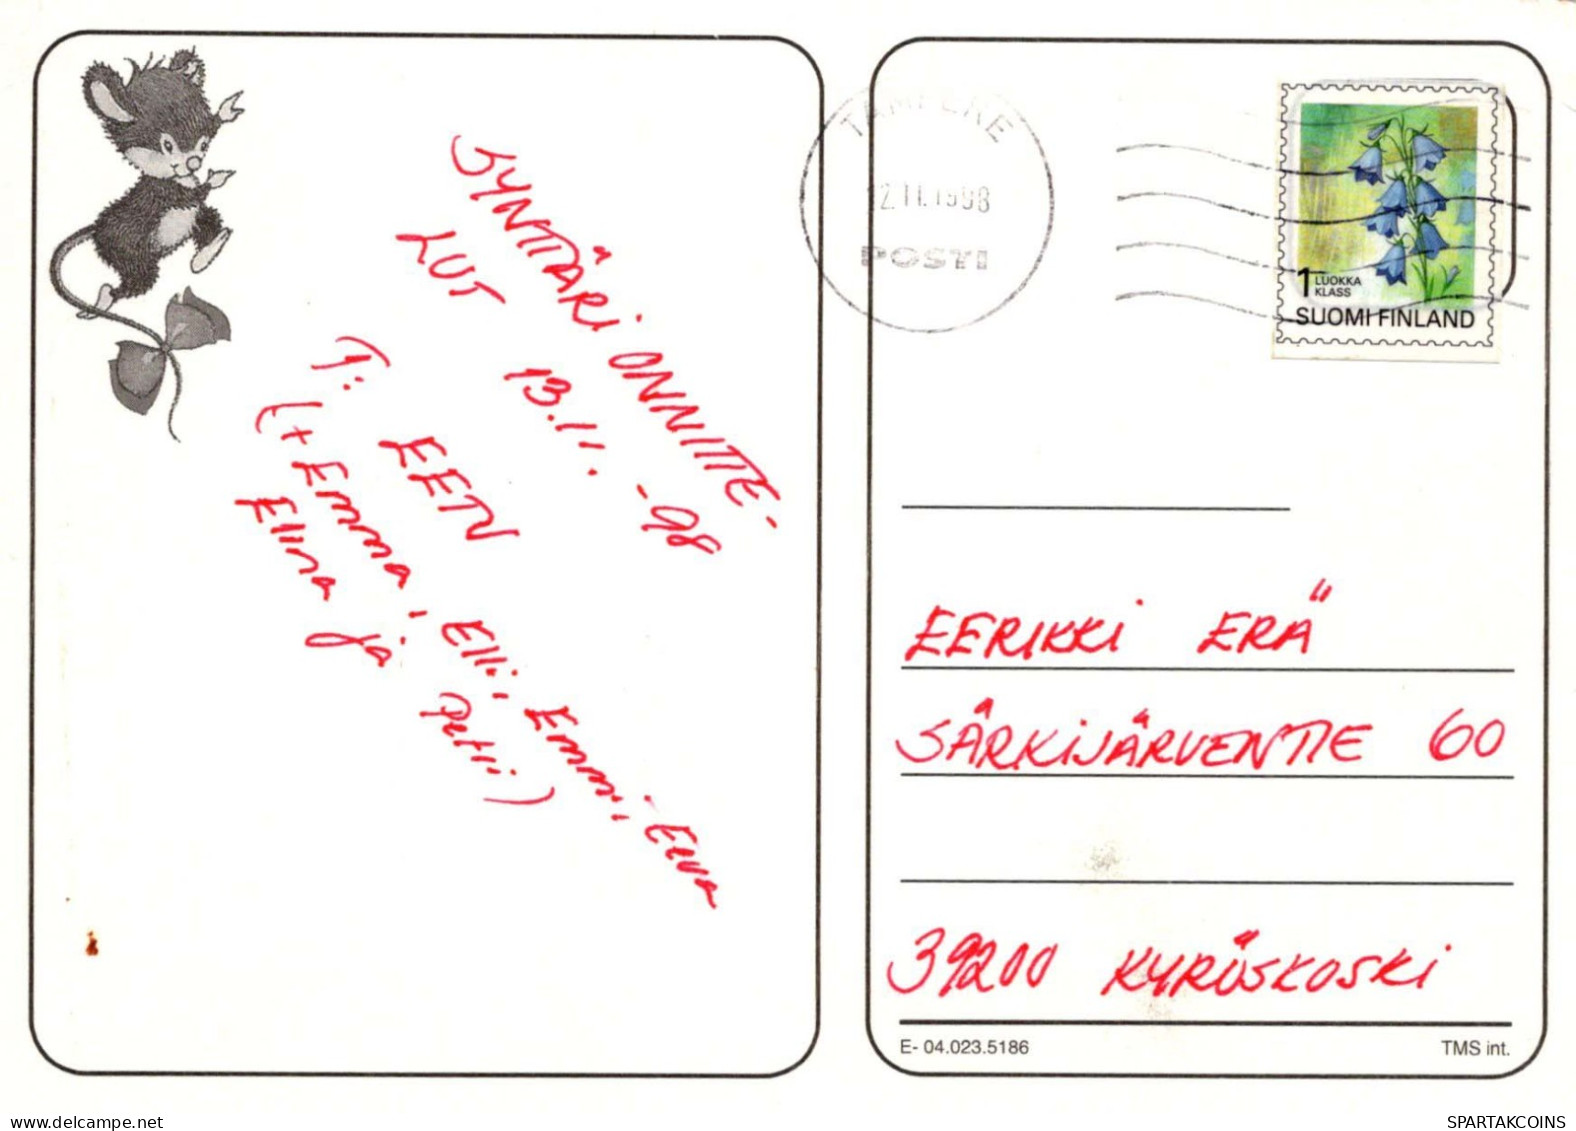 SYNTTÄRI ONNITTE-
LUT 13.11.-98
T: EETU
(+ Emma, Elli, Emmi, Eeva
Elina ja Petri)
TAMPERE
12.11.1998
POSTI
1 LUOKKA
KLASS
SUOMI FINLAND
EERIKKI ERÄ
SÄRKIJÄRVENTIE 60
39200 KYRÖSKOSKI
E- 04.023.5186
TMS int.
osta.ee
SPARTAKCOINS